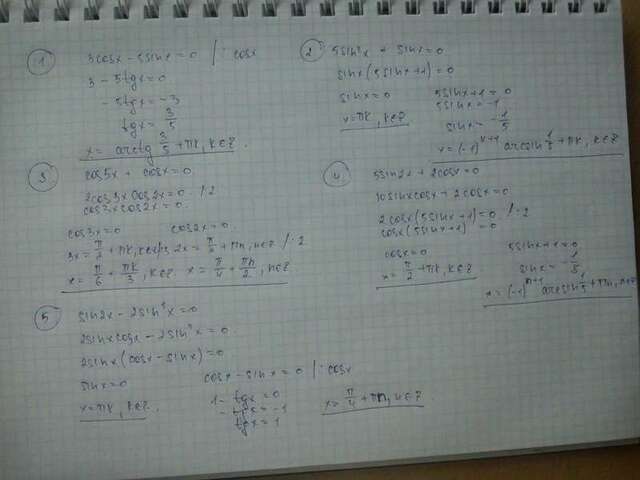 1
3cosx - 5sinx = 0 | : cosx
3 - 5tgx = 0
- 5tgx = -3
tgx = 3/5
x = arctg 3/5 + πk, k∈Z.
2
5sin²x + sinx = 0
sinx(5sinx+1) = 0
sinx = 0
x = πk, k∈Z
5sinx+1 = 0
5sinx = -1
sinx = -1/5
x = (-1)ⁿ⁺¹ arcsin 1/5 + πk, k∈Z
3
cos5x + cosx = 0
2cos3x cos2x = 0 : 2
cos3x cos2x = 0.
cos3x = 0
cos2x = 0.
3x = π/2 + πk, k∈Z
2x = π/2 + πn, n∈Z / : 2
x = π/6 + πk/3, k∈Z
x = π/4 + πn/2, n∈Z
4
5sin2x + 2cosx = 0
10sinxcosx + 2cosx = 0
2cosx(5sinx+1) = 0 / : 2
cosx(5sinx+1) = 0
cosx = 0
x = π/2 + πk, k∈Z
5sinx+1 = 0
sinx = -1/5
x = (-1)ⁿ⁺¹ arcsin 1/5 + πn, n∈Z
5
sin2x - 2sin²x = 0
2sinxcosx - 2sin²x = 0
2sinx(cosx - sinx) = 0
sinx = 0
x = πk, k∈Z.
cosx - sinx = 0 | : cosx
1 - tgx = 0
- tgx = -1
tgx = 1
x = π/4 + πn, n∈Z